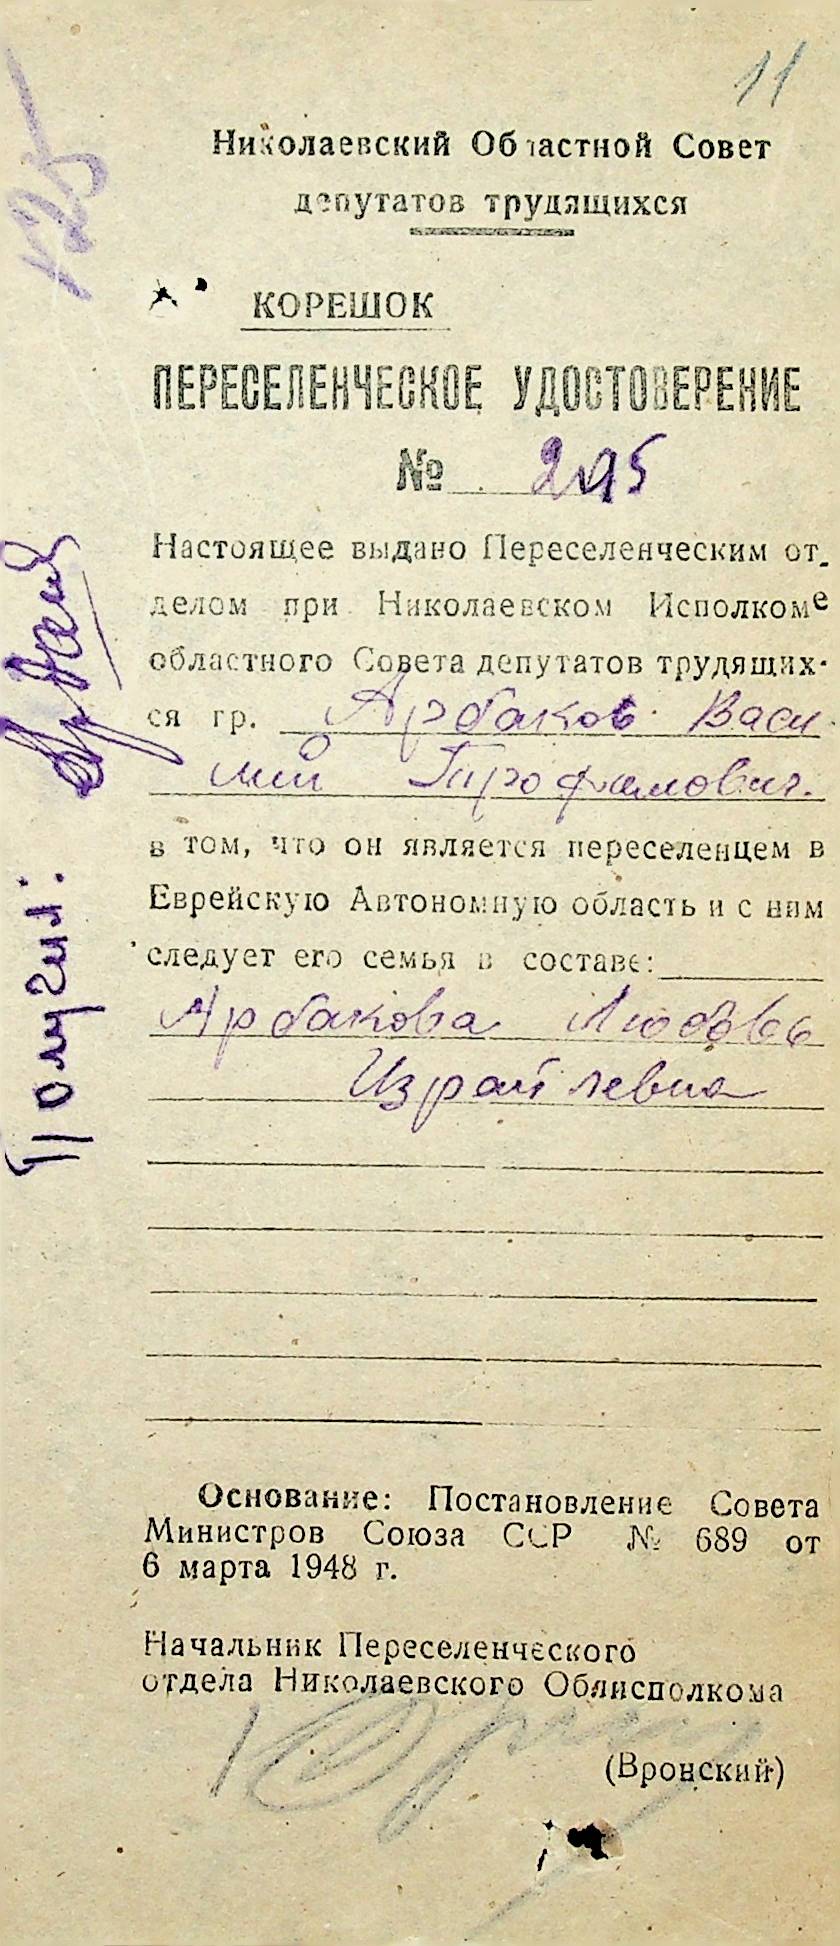 11
125
Николаевский Областной Совет
депутатов трудящихся
КОРЕШОК
ПЕРЕСЕЛЕНЧЕСКОЕ УДОСТОВЕРЕНИЕ
№ 295
Настоящее выдано Переселенческим от-
делом при Николаевском Исполкоме
областного Совета депутатов трудящих-
ся гр. Арбаков Васи
лий Трофимович.
в том, что он является переселенцем в
Еврейскую Автономную область и с ним
следует его семья в составе:
Арбакова Любовь
Израйлевна
Основание: Постановление Совета
Министров Союза ССР № 689 от
6 марта 1948 г.
Начальник Переселенческого
отдела Николаевского Облисполкома
(Вронский)
Получил: